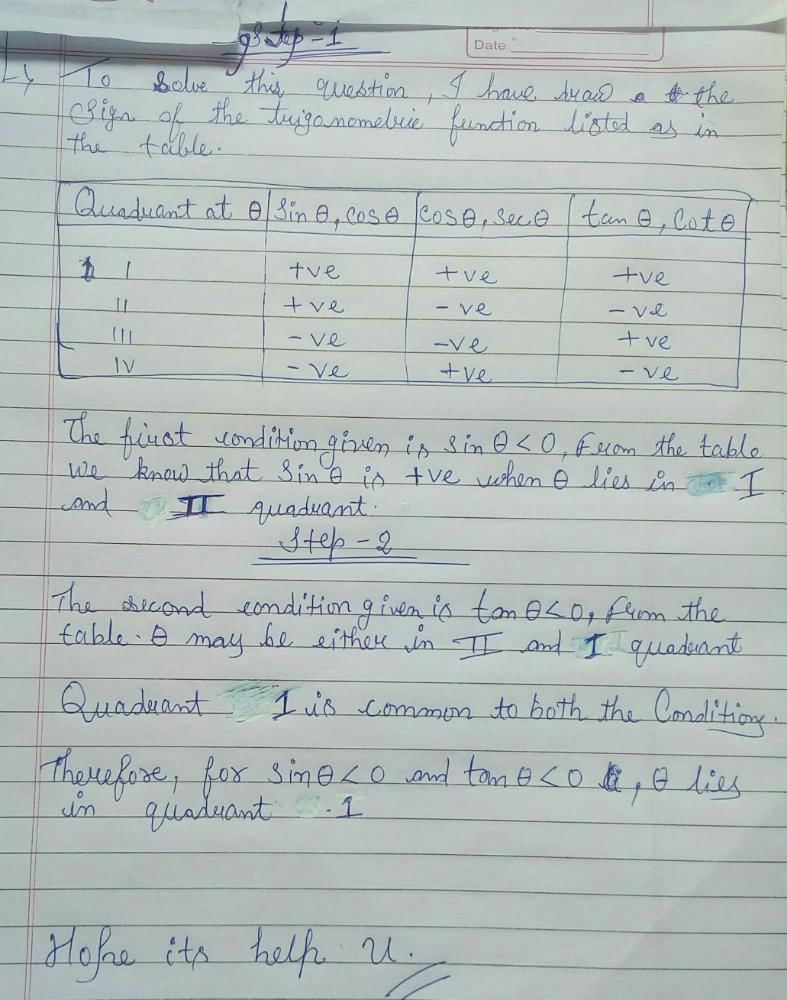 Step-1
Date
To Solve this question, I have draw a the
Sign of the triganometric function listed as in
the table.
Quadruant at θ | Sin θ, cos θ | cos θ, sec θ | tan θ, Cot θ
I +ve +ve +ve
II +ve -ve -ve
III -ve -ve +ve
IV -ve +ve -ve
The first condition given is Sin θ < 0, From the table
we know that Sin θ is +ve when θ lies in I
and II quadrant.
Step-2
The second condition given is tan θ < 0, from the
table. θ may be either in II and I quadrant
Quadrant 1 is common to both the Conditions.
Therefore, for Sin θ < 0 and tan θ < 0, θ lies
in quadrant .1
Hope its help U.